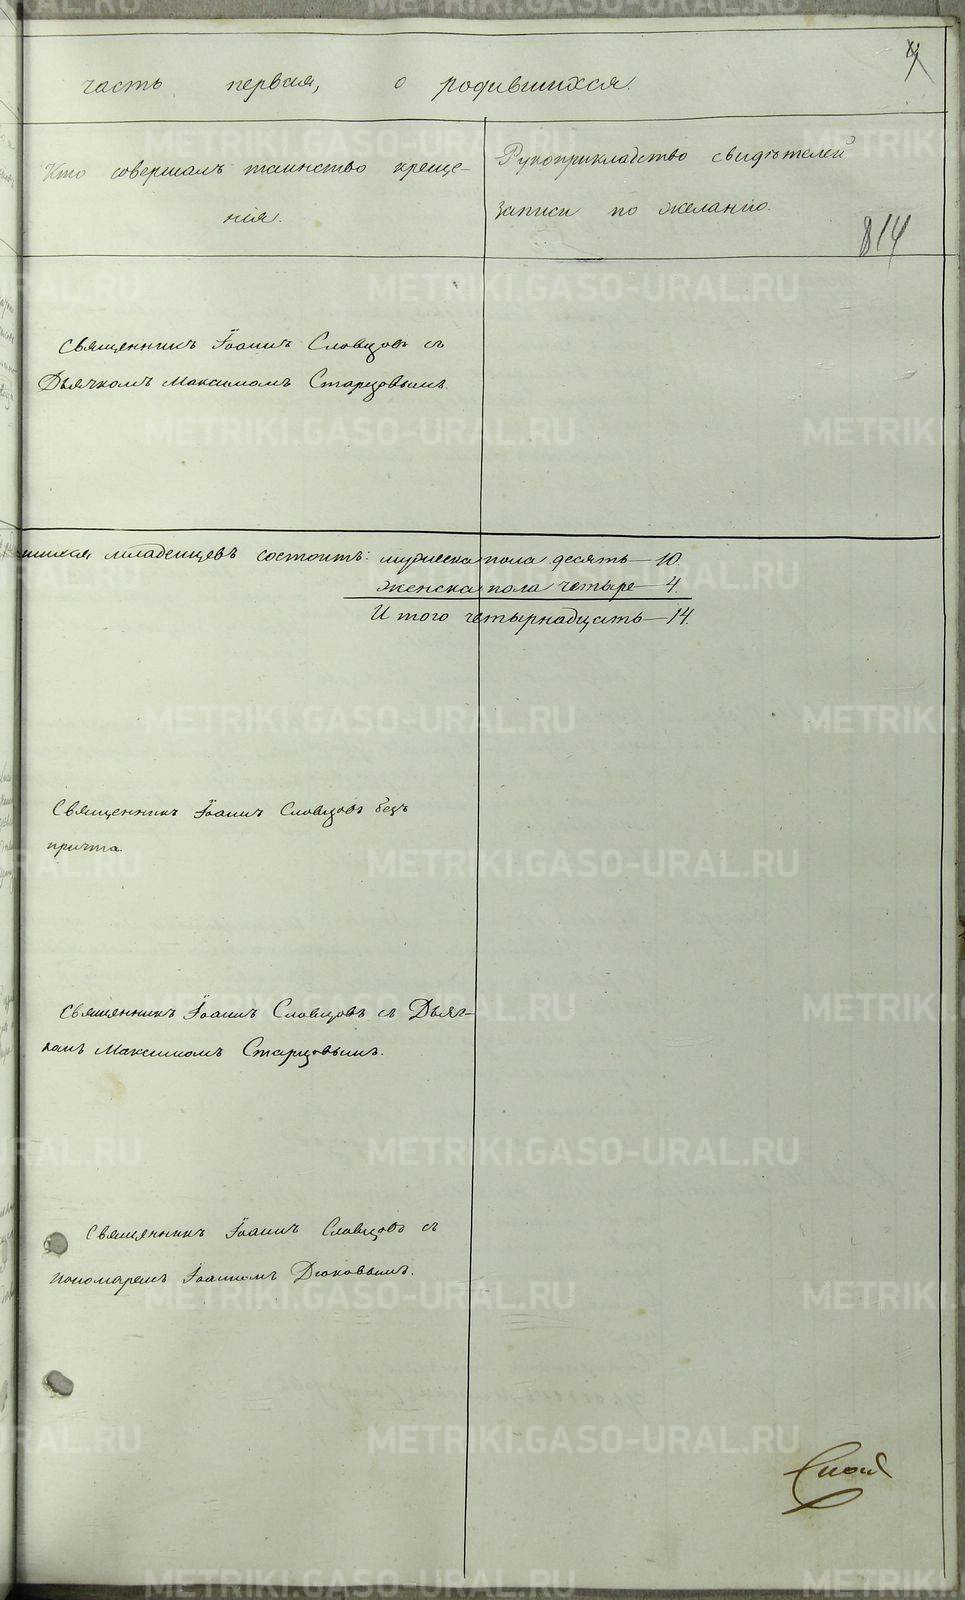 часть первая, о родившихся.
Кто совершалъ таинство креще-
нія.
Рукоприкладство свидѣтелей
записи по желанію.
814
Священникъ Іоаннъ Словцовъ съ
Дьячкомъ Максимомъ Старцовымъ.
младенцевъ состоитъ: мужеска пола десять — 10.
женска пола четыре — 4.
Итого четырнадцать — 14.
Священникъ Іоаннъ Словцовъ безъ
причта.
Священникъ Іоаннъ Словцовъ съ Дьяч-
комъ Максимомъ Старцовымъ.
Священникъ Іоаннъ Словцовъ съ
пономаремъ Іоанномъ Дюковымъ.
METRIKI.GASO-URAL.RU